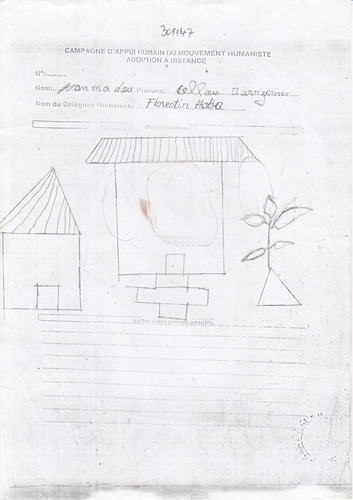 301147
CAMPAGNE D'APPUI HUMAIN DU MOUVEMENT HUMANISTE
ADOPTION A DISTANCE
N°:..........
Nom: Mamadou Prénoms: Cellou Barry Classe:
Nom du Délégué Humaniste: Florentin Haba
Dessin
Lettre à mes parents adoptifs